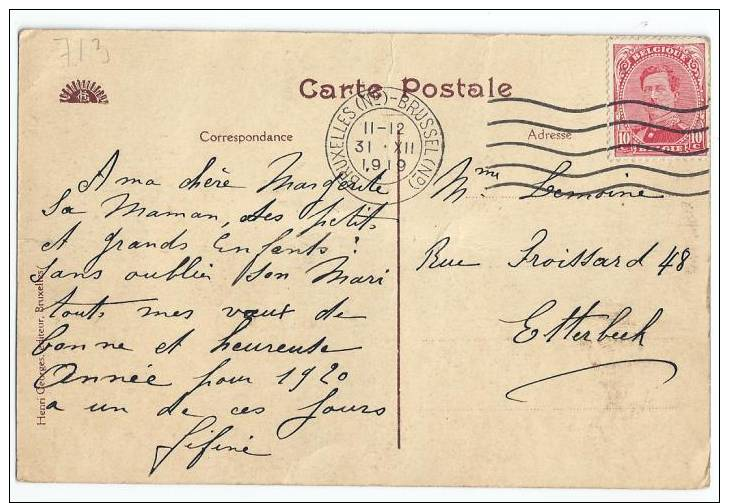 713
Carte Postale
BELGIQUE
10 c 10 c
BELGIË
BRUXELLES (Nd) - BRUSSEL (Nd)
11-12
31 · XII
1919
Correspondance
Adresse
A ma chère Margerite
Sa Maman, Ses petits
et grands Enfants !
Sans oublier Son Mari
tout mes vœux de
bonne et heureuse
Année pour 1920
a un de ces Jours
Fifine
Mme Lemoine
Rue Froissard 48
Etterbeek
Henri Georges, éditeur, Bruxelles